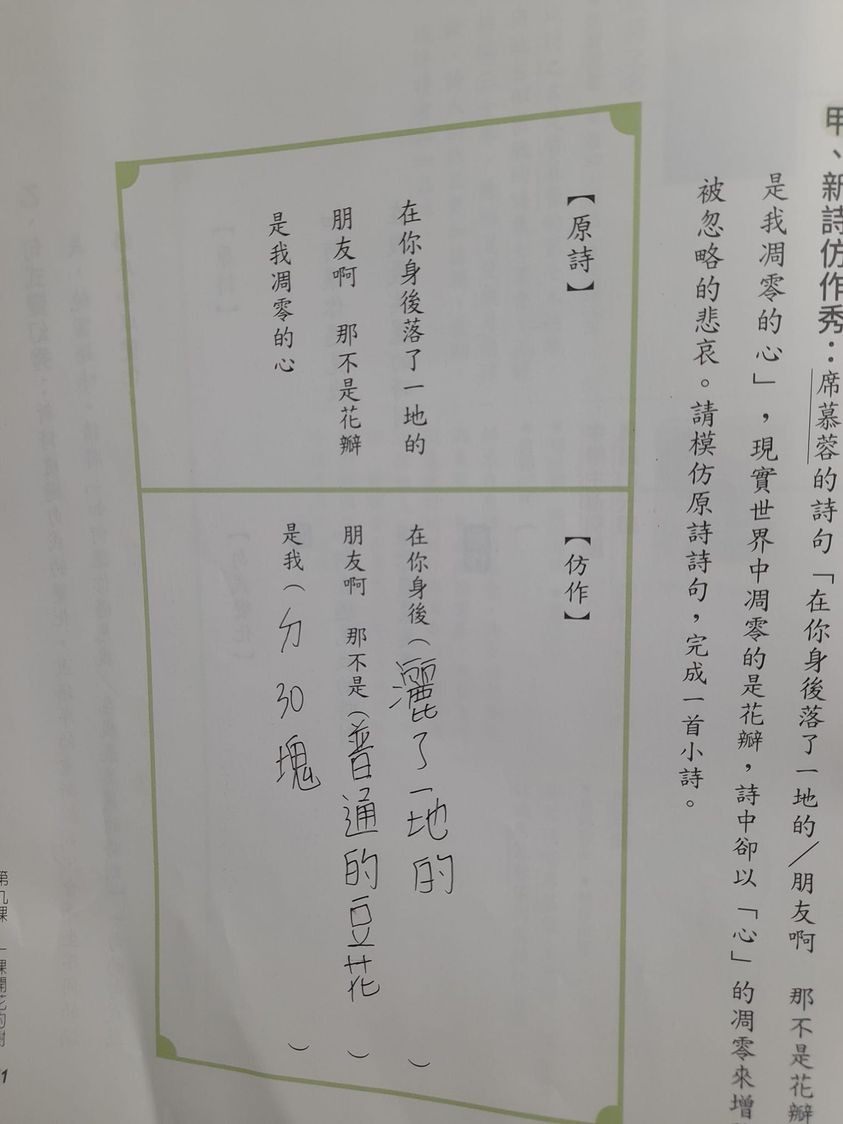 甲、新詩仿作秀：席慕蓉的詩句「在你身後落了一地的／朋友啊　那不是花瓣
是我凋零的心」，現實世界中凋零的是花瓣，詩中卻以「心」的凋零來增
被忽略的悲哀。請模仿原詩詩句，完成一首小詩。
【原詩】
在你身後落了一地的
朋友啊　那不是花瓣
是我凋零的心
【仿作】
在你身後（灑了一地的）
朋友啊　那不是（普通的豆花）
是我（ㄉ 30 塊）
第九課　一棵開花的樹
1